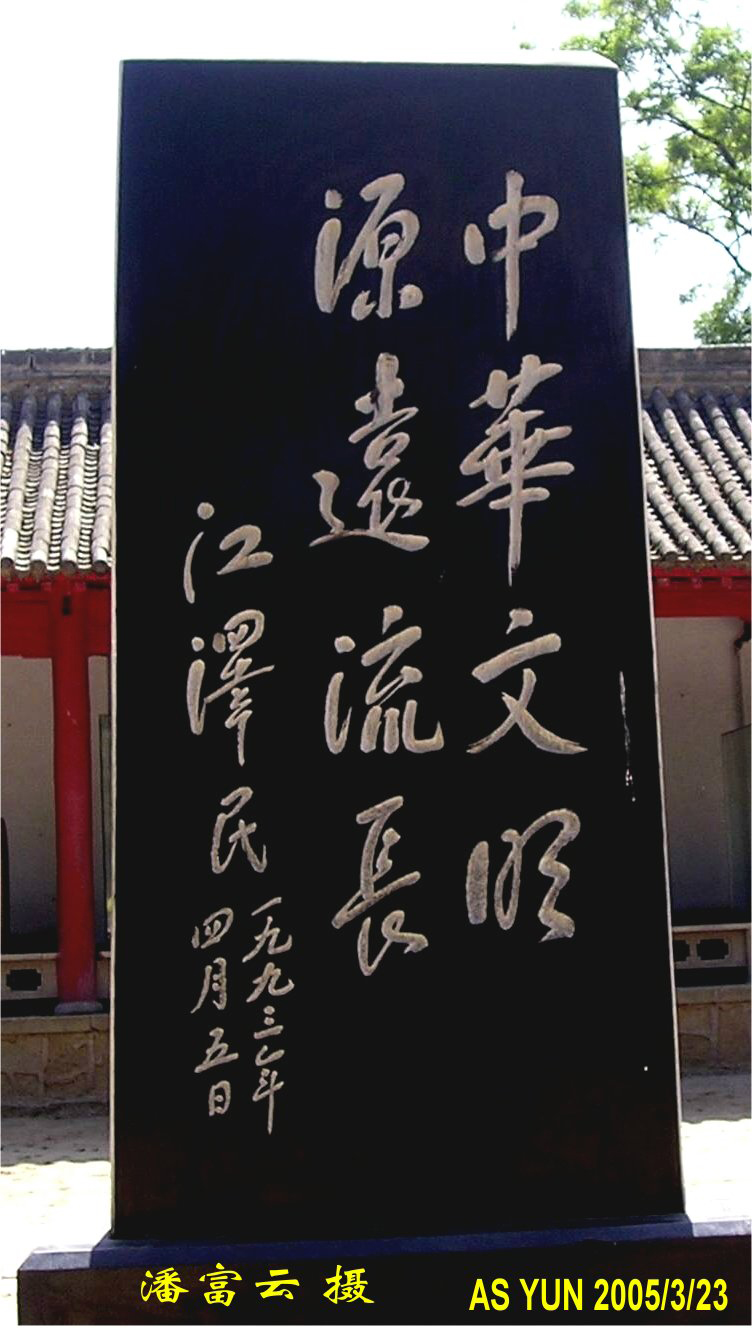 中華文明
源遠流長
江澤民
一九九三年
四月五日
潘富云 摄
AS YUN 2005/3/23